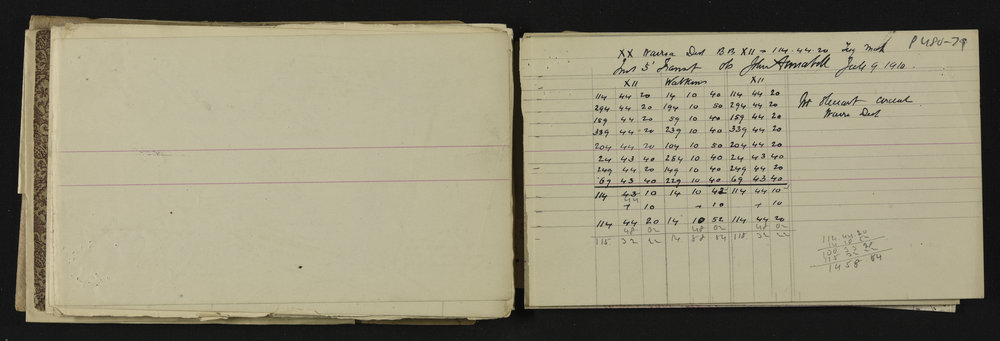 P480-79
XX Wairoa Dist BB XII = 114.44.20 Trig Mark
Inst 5" Transit obs John Annabell July 9 1910.
XII Watkins XII
114 44 20 14 10 40 114 44 20
294 44 20 194 10 50 294 44 20
159 44 20 59 10 40 159 44 20
339 44 20 239 10 40 339 44 20
204 44 20 104 10 50 204 44 20
24 43 40 284 10 40 24 43 40
249 44 20 149 10 40 249 44 20
69 43 40 229 10 40 69 43 40
114 43 10 14 10 42 114 44 10
44
+ 10 + 10 + 10
114 44 20 14 10 52 114 44 20
48 02 48 02 48 02
115 32 22 14 58 54 115 32 22
circuit
Dist
114 44 20
115 32
14 58 54